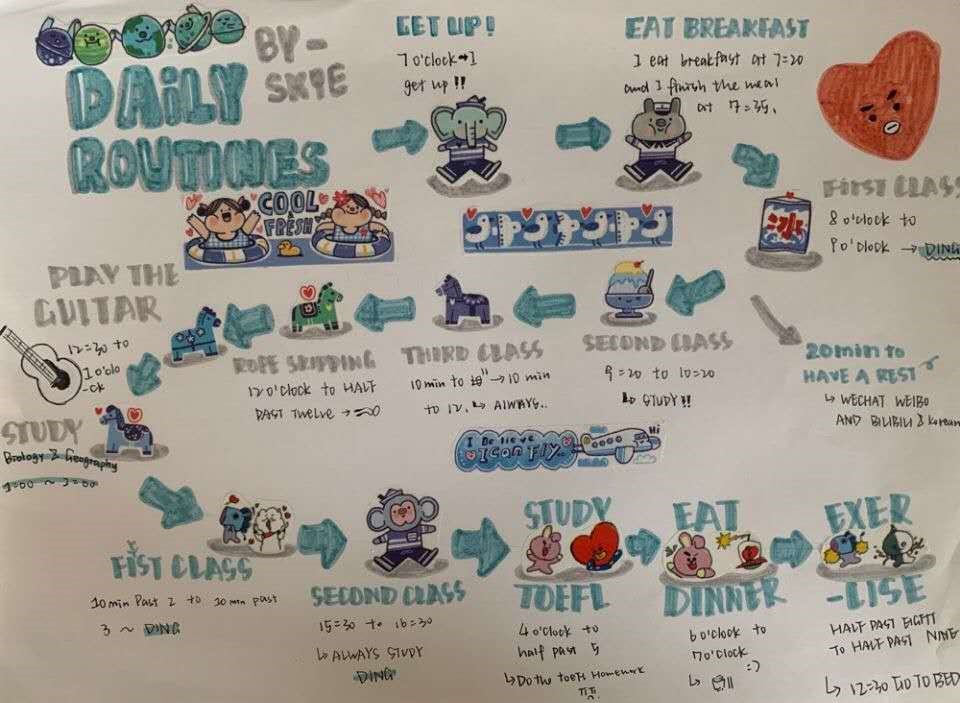 DAILY
ROUTINES
BY-
SKYE
GET UP!
7 o'clock → I
get up!!
EAT BREAKFAST
I eat breakfast at 7=20
and I finish the meal
at 7=35.
FIRST CLASS
8 o'clock to
9 o'clock → DING
冰
COOL
&
FRESH
20min to
HAVE A REST
↳ WECHAT WEIBO
AND BILIBILI & Korean
SECOND CLASS
9=20 to 10=20
↳ STUDY!!
THIRD CLASS
10 min to 11 → 10 min
to 12. ↳ ALWAYS..
ROPE SKIPPING
12 o'clock to HALF
PAST Twelve →
PLAY THE
GUITAR
12=30 to
1 o'clo
-ck
STUDY
Biology & Geography
1=00 ~ 2=00
I Believe
I can Fly.
Hi
FIST CLASS
r
10 min Past 2 to 10 min past
3 ~ DING
SECOND CLASS
15=30 to 16=30
↳ ALWAYS STUDY
DING
STUDY
TOEFL
4 o'clock to
half past 5
↳ Do the toefl Homework
EAT
DINNER
6 o'clock to
7 o'clock
:)
EXER
-CISE
HALF PAST EIGHT
TO HALF PAST NINE
↳ 12=30 GO TO BED